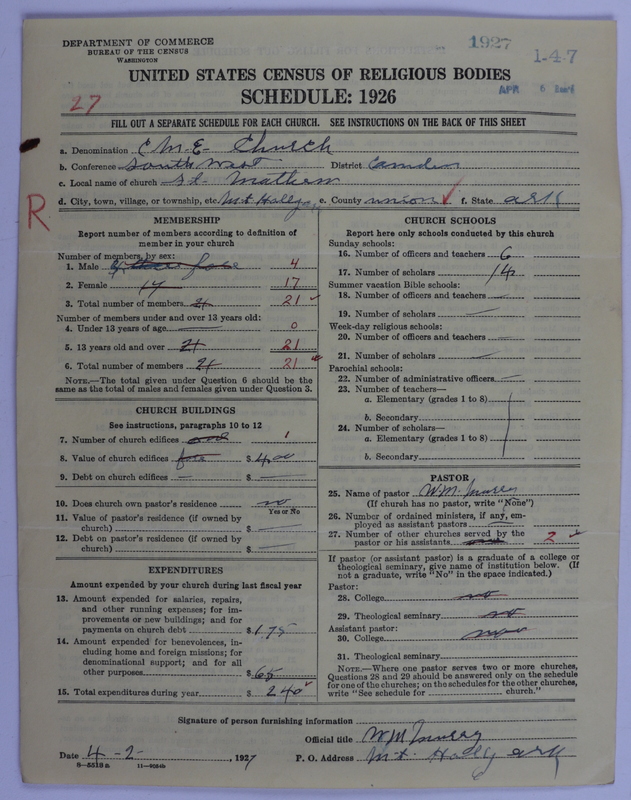 DEPARTMENT OF COMMERCE
BUREAU OF THE CENSUS
WASHINGTON
1927
1-47
APR 6
UNITED STATES CENSUS OF RELIGIOUS BODIES
SCHEDULE: 1926
27
FILL OUT A SEPARATE SCHEDULE FOR EACH CHURCH. SEE INSTRUCTIONS ON THE BACK OF THIS SHEET
a. Denomination C M. E. Church
b. Conference South West District Camden
c. Local name of church St. Mathew
d. City, town, village, or township, etc. Mt Holly e. County union f. State ark
R
MEMBERSHIP
Report number of members according to definition of
member in your church
Number of members, by sex:
1. Male 4
2. Female 17 17
3. Total number of members 21 21
Number of members under and over 13 years old:
4. Under 13 years of age 0
5. 13 years old and over 21 21
6. Total number of members 21 21
NOTE.—The total given under Question 6 should be the
same as the total of males and females given under Question 3.
CHURCH BUILDINGS
See instructions, paragraphs 10 to 12
7. Number of church edifices one 1
8. Value of church edifices $ 400
9. Debt on church edifices — $ —
10. Does church own pastor's residence no
Yes or No
11. Value of pastor's residence (if owned by
church) $ —
12. Debt on pastor's residence (if owned by
church) $ —
EXPENDITURES
Amount expended by your church during last fiscal year
13. Amount expended for salaries, repairs,
and other running expenses; for im-
provements or new buildings; and for
payments on church debt $ 175
14. Amount expended for benevolences, in-
cluding home and foreign missions; for
denominational support; and for all
other purposes $ 65
15. Total expenditures during year $ 240
CHURCH SCHOOLS
Report here only schools conducted by this church
Sunday schools:
16. Number of officers and teachers 6
17. Number of scholars 14
Summer vacation Bible schools:
18. Number of officers and teachers —
19. Number of scholars —
Week-day religious schools:
20. Number of officers and teachers —
21. Number of scholars —
Parochial schools:
22. Number of administrative officers —
23. Number of teachers—
a. Elementary (grades 1 to 8)
b. Secondary
24. Number of scholars—
a. Elementary (grades 1 to 8)
b. Secondary
PASTOR
25. Name of pastor W.M.
(If church has no pastor, write "None")
26. Number of ordained ministers, if any, em-
ployed as assistant pastors —
27. Number of other churches served by the
pastor or his assistants 2
If pastor (or assistant pastor) is a graduate of a college or
theological seminary, give name of institution below. (If
not a graduate, write "No" in the space indicated.)
Pastor:
28. College no
29. Theological seminary no
Assistant pastor:
30. College
31. Theological seminary
NOTE.—Where one pastor serves two or more churches,
Questions 28 and 29 should be answered only on the schedule
for one of the churches; on the schedules for the other churches,
write "See schedule for church."
Signature of person furnishing information
Official title W M
Date 4-2-, 1927 P. O. Address Mt. Holly ark
8—5513 a